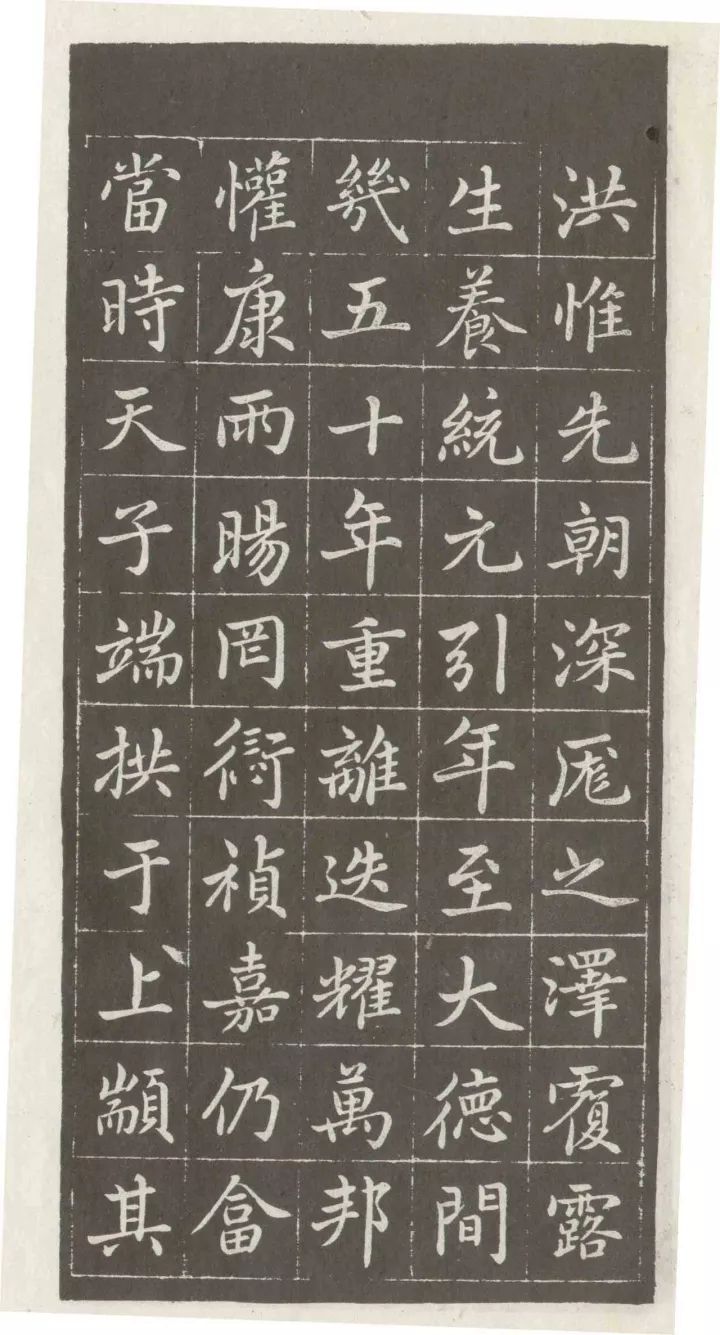 洪惟先朝深厖之澤覆露
生養統元引年至大德間
幾五十年重離迭耀萬邦
懽康雨暘罔愆禎嘉仍畣
當時天子端拱于上顓其